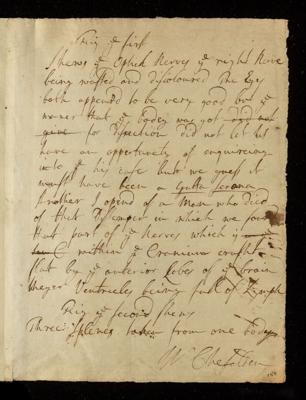 Fig yͤ first
Shews yͤ Optick Nerves yͤ right Nerve
being wasted and discoloured The Eyes
both appeard to be very good but yͤ
maner that yͤ bodey was got
for disection did not let us
have an oppertunity of enquireing
into yͤ his case but we guess it
must have been a Gutta Serena
Another I opend of a Man who died
of that Distemper in which we found
that part of yͤ Nerves which
within yͤ Cranium crusht
flat by yͤ anterior Lobes of yͤ brain
Ventricles being full of Lymph
Fig yͤ second shews
Three Spleens taken from one bodey
Wᵐ Cheselden